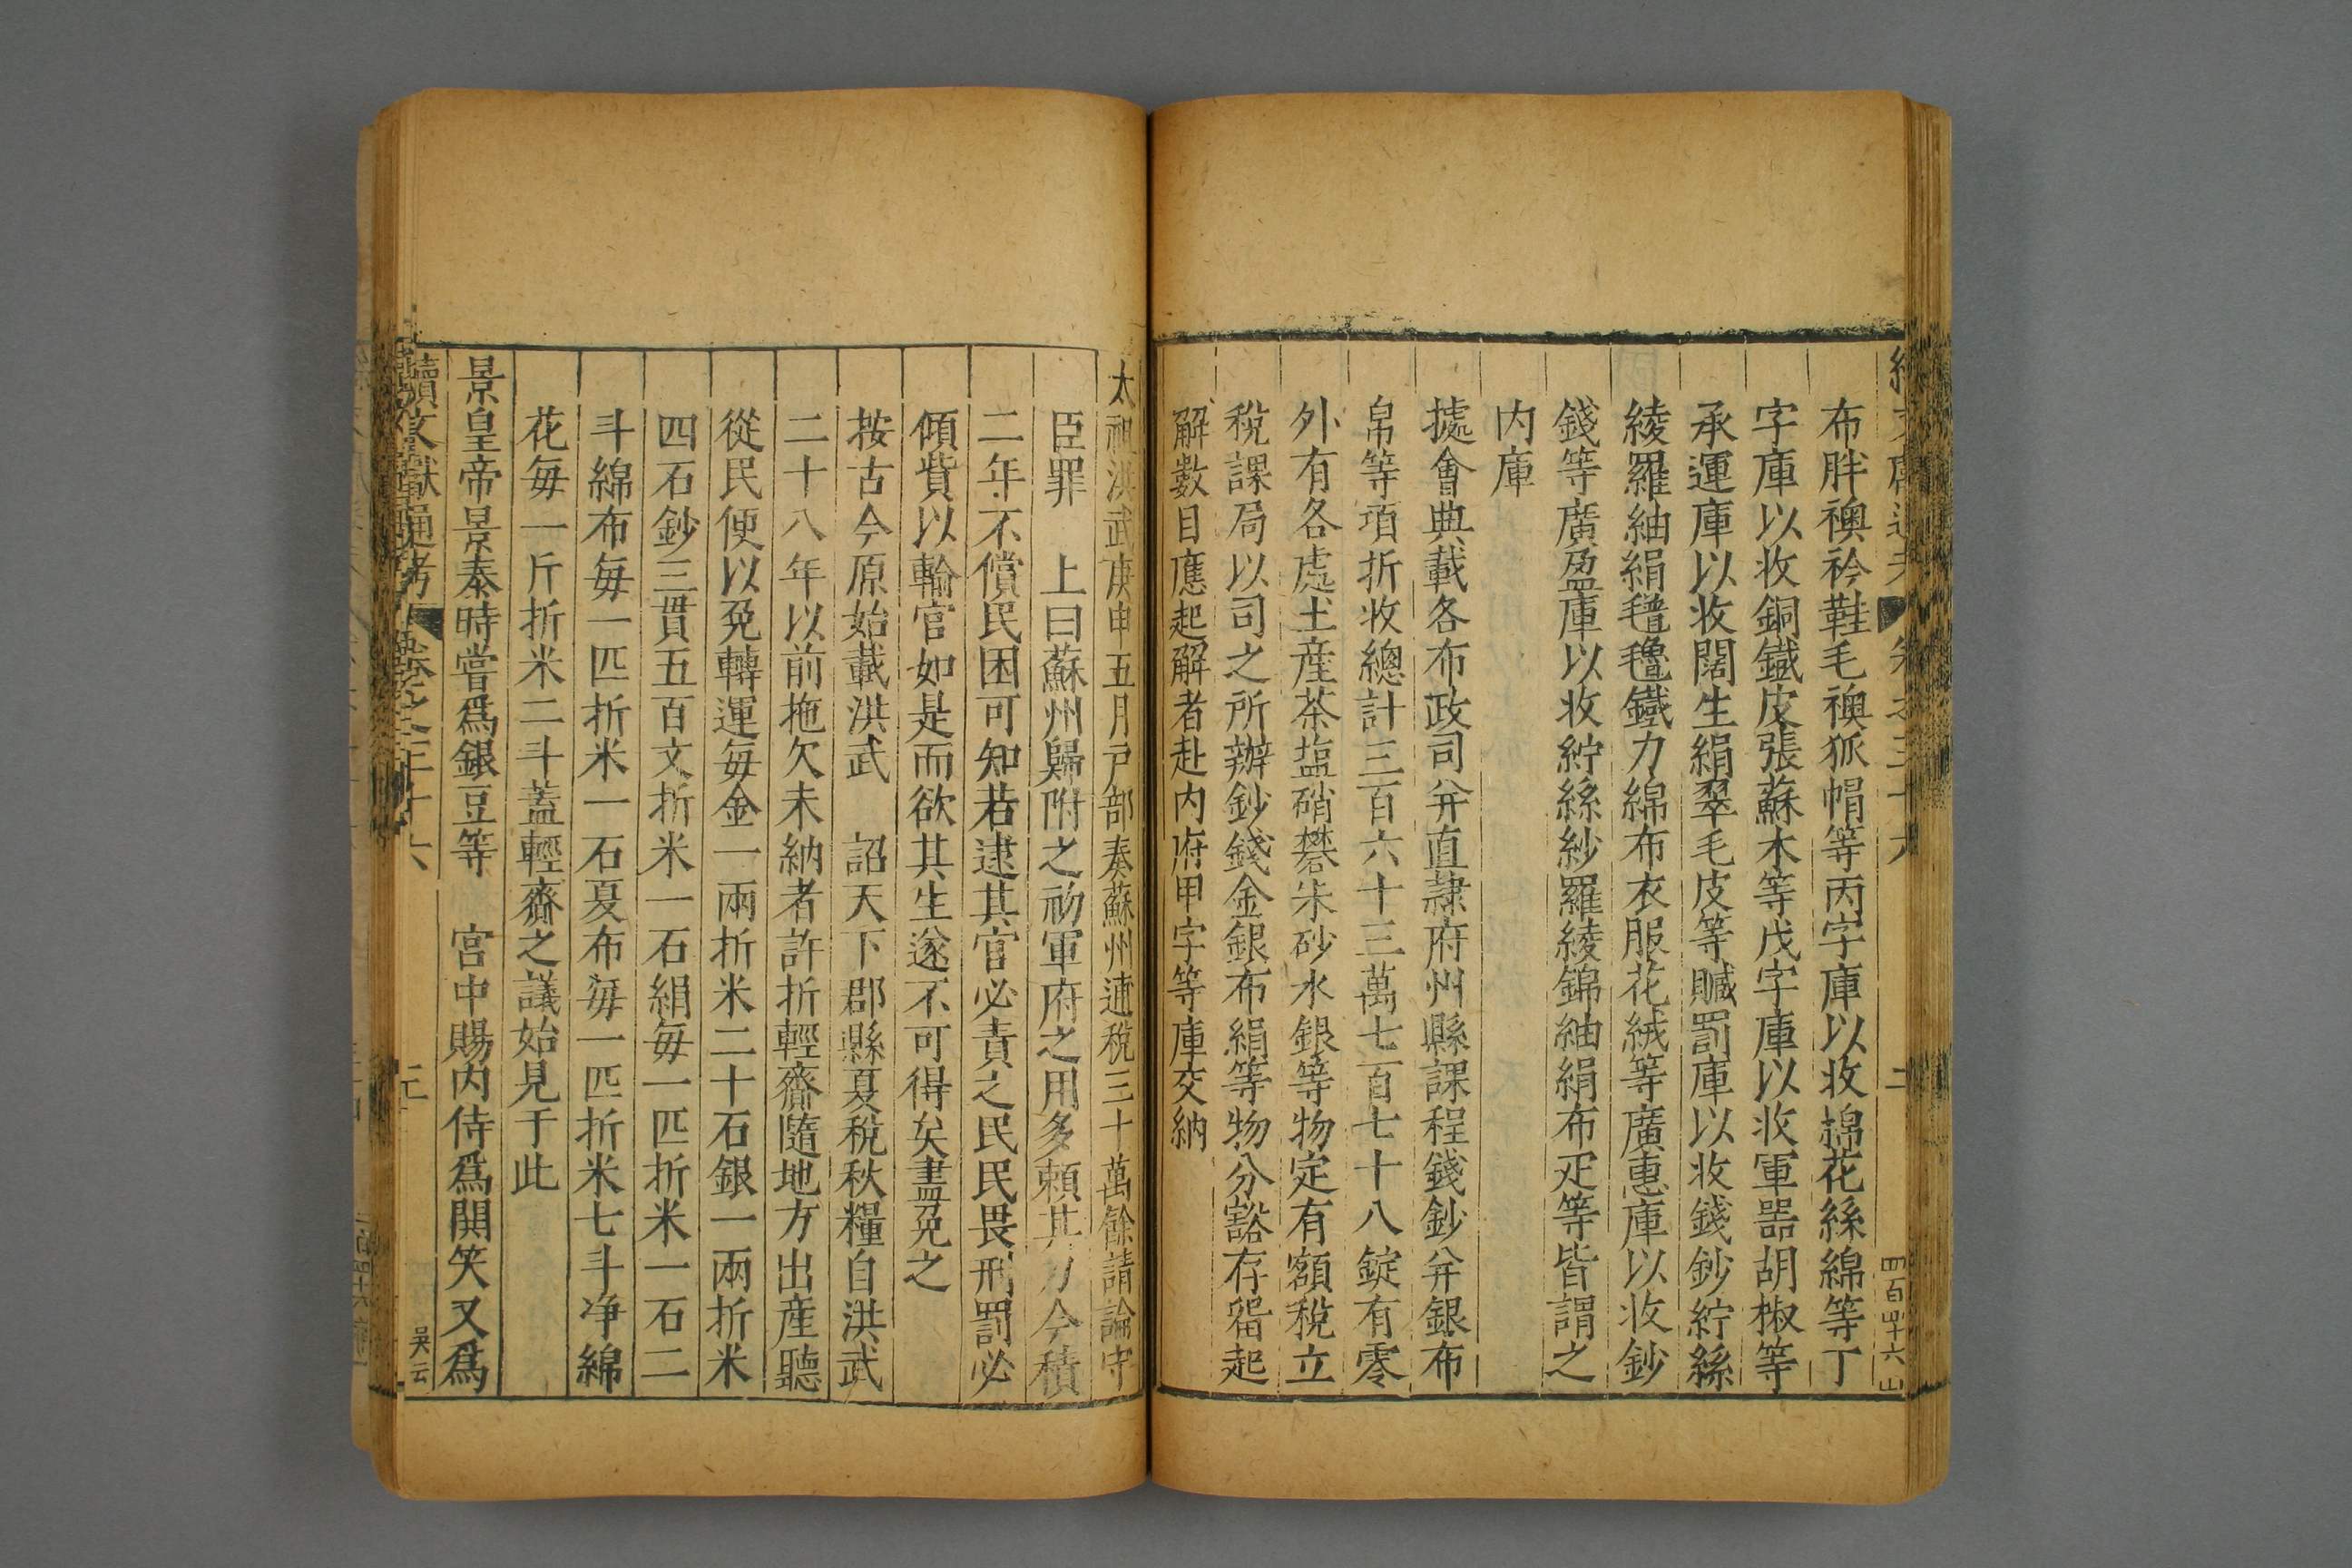 布胖襖衿鞋毛襖狐帽等丙字庫以收綿花絲綿等丁
字庫以收銅鐵皮張蘇木等戊字庫以收軍器胡椒等
承運庫以收闊生絹翠毛皮等贓罰庫以收錢鈔紵絲
綾羅紬絹氆氌鐵力綿布衣服花絨等廣惠庫以收鈔
錢等廣盈庫以收紵絲紗羅綾錦紬絹布疋等皆謂之
内庫
據會典載各布政司并直隷府州縣課程錢鈔并銀布
帛等項折收總計三百六十三萬七百七十八錠有零
外有各處土産茶塩硝礬朱砂水銀等物定有額稅立
稅課局以司之所辦鈔錢金銀布絹等物分豁存畱起
解數目應起解者赴内府甲字等庫交納
太祖洪武庚申五月戸部奏蘇州逋稅三十萬餘請論守
臣罪 上曰蘇州歸附之初軍府之用多頼其力今積
二年不償民困可知若逮其官必責之民民畏刑罰必
傾貲以輸官如是而欲其生遂不可得矣盡免之
按古今原始載洪武 詔天下郡縣夏稅秋糧自洪武
二十八年以前拖欠未納者許折輕齎隨地方出産聽
從民便以免轉運每金一兩折米二十石銀一兩折米
四石鈔三貫五百文折米一石絹每一匹折米一石二
斗綿布每一匹折米一石夏布每一匹折米七斗净綿
花每一斤折米二斗蓋輕齎之議始見于此
景皇帝景泰時嘗爲銀豆等 宮中賜内侍爲閧笑又爲
續文獻通考 卷之三十六 二 吳云